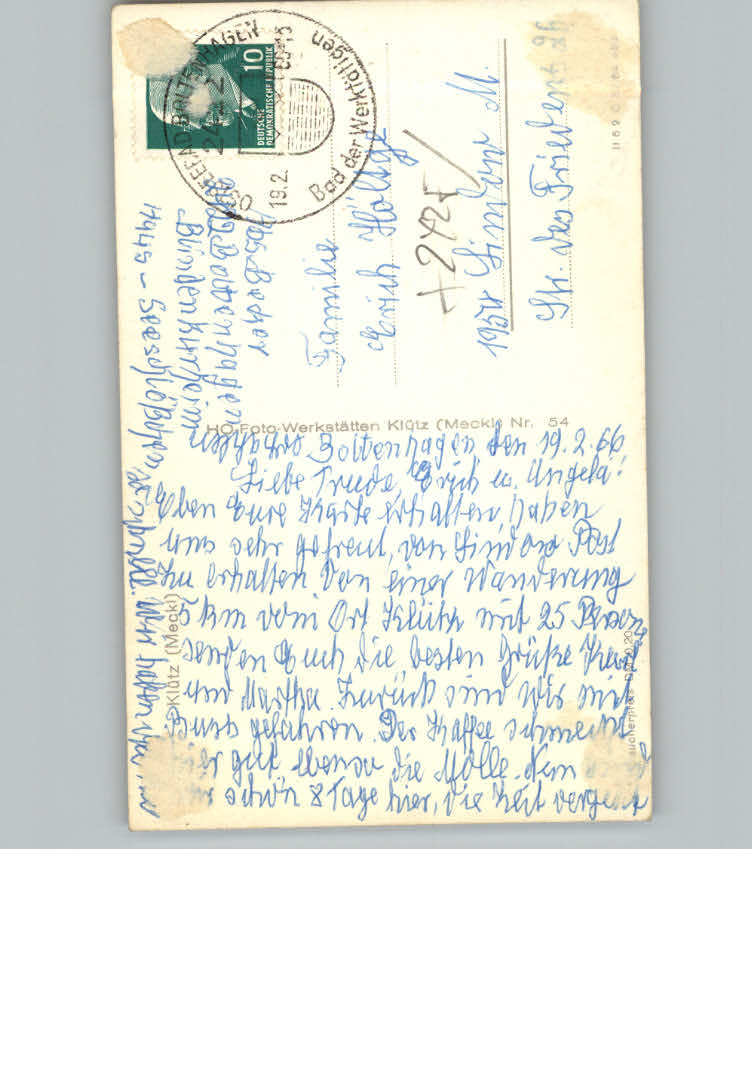 OSTSEEBAD BOLTENHAGEN
2422
19.2.
Bad der Werktätigen
10
DEUTSCHE
DEMOKRATISCHE REPUBLIK
Abs. Becker
2422 Boltenhagen
Blindenkurheim
Familie
Erich Höltge
+ 2425 /
195r Lindow M.
Str. des Friedens 26
HO-Foto-Werkstätten Klütz (Meckl) Nr. 54
Klütz (Meckl)
Boltenhagen den 19.2.66
Liebe Trude, Erich u. Angela!
Eben Eure Karte erhalten, haben
uns sehr gefreut, von Lindow Post
zu erhalten Von einer Wanderung
5 km vom Ort Klütz mit 25 Person
senden Euch die besten Grüße Karl
und Martha. Zurück sind wir mit
Buss gefahren. Der Kaffee schmeckt
hier gut ebenso die Molle. Nun
wir schon 8 Tage hier, die Zeit vergeht
schnell. Wir haben